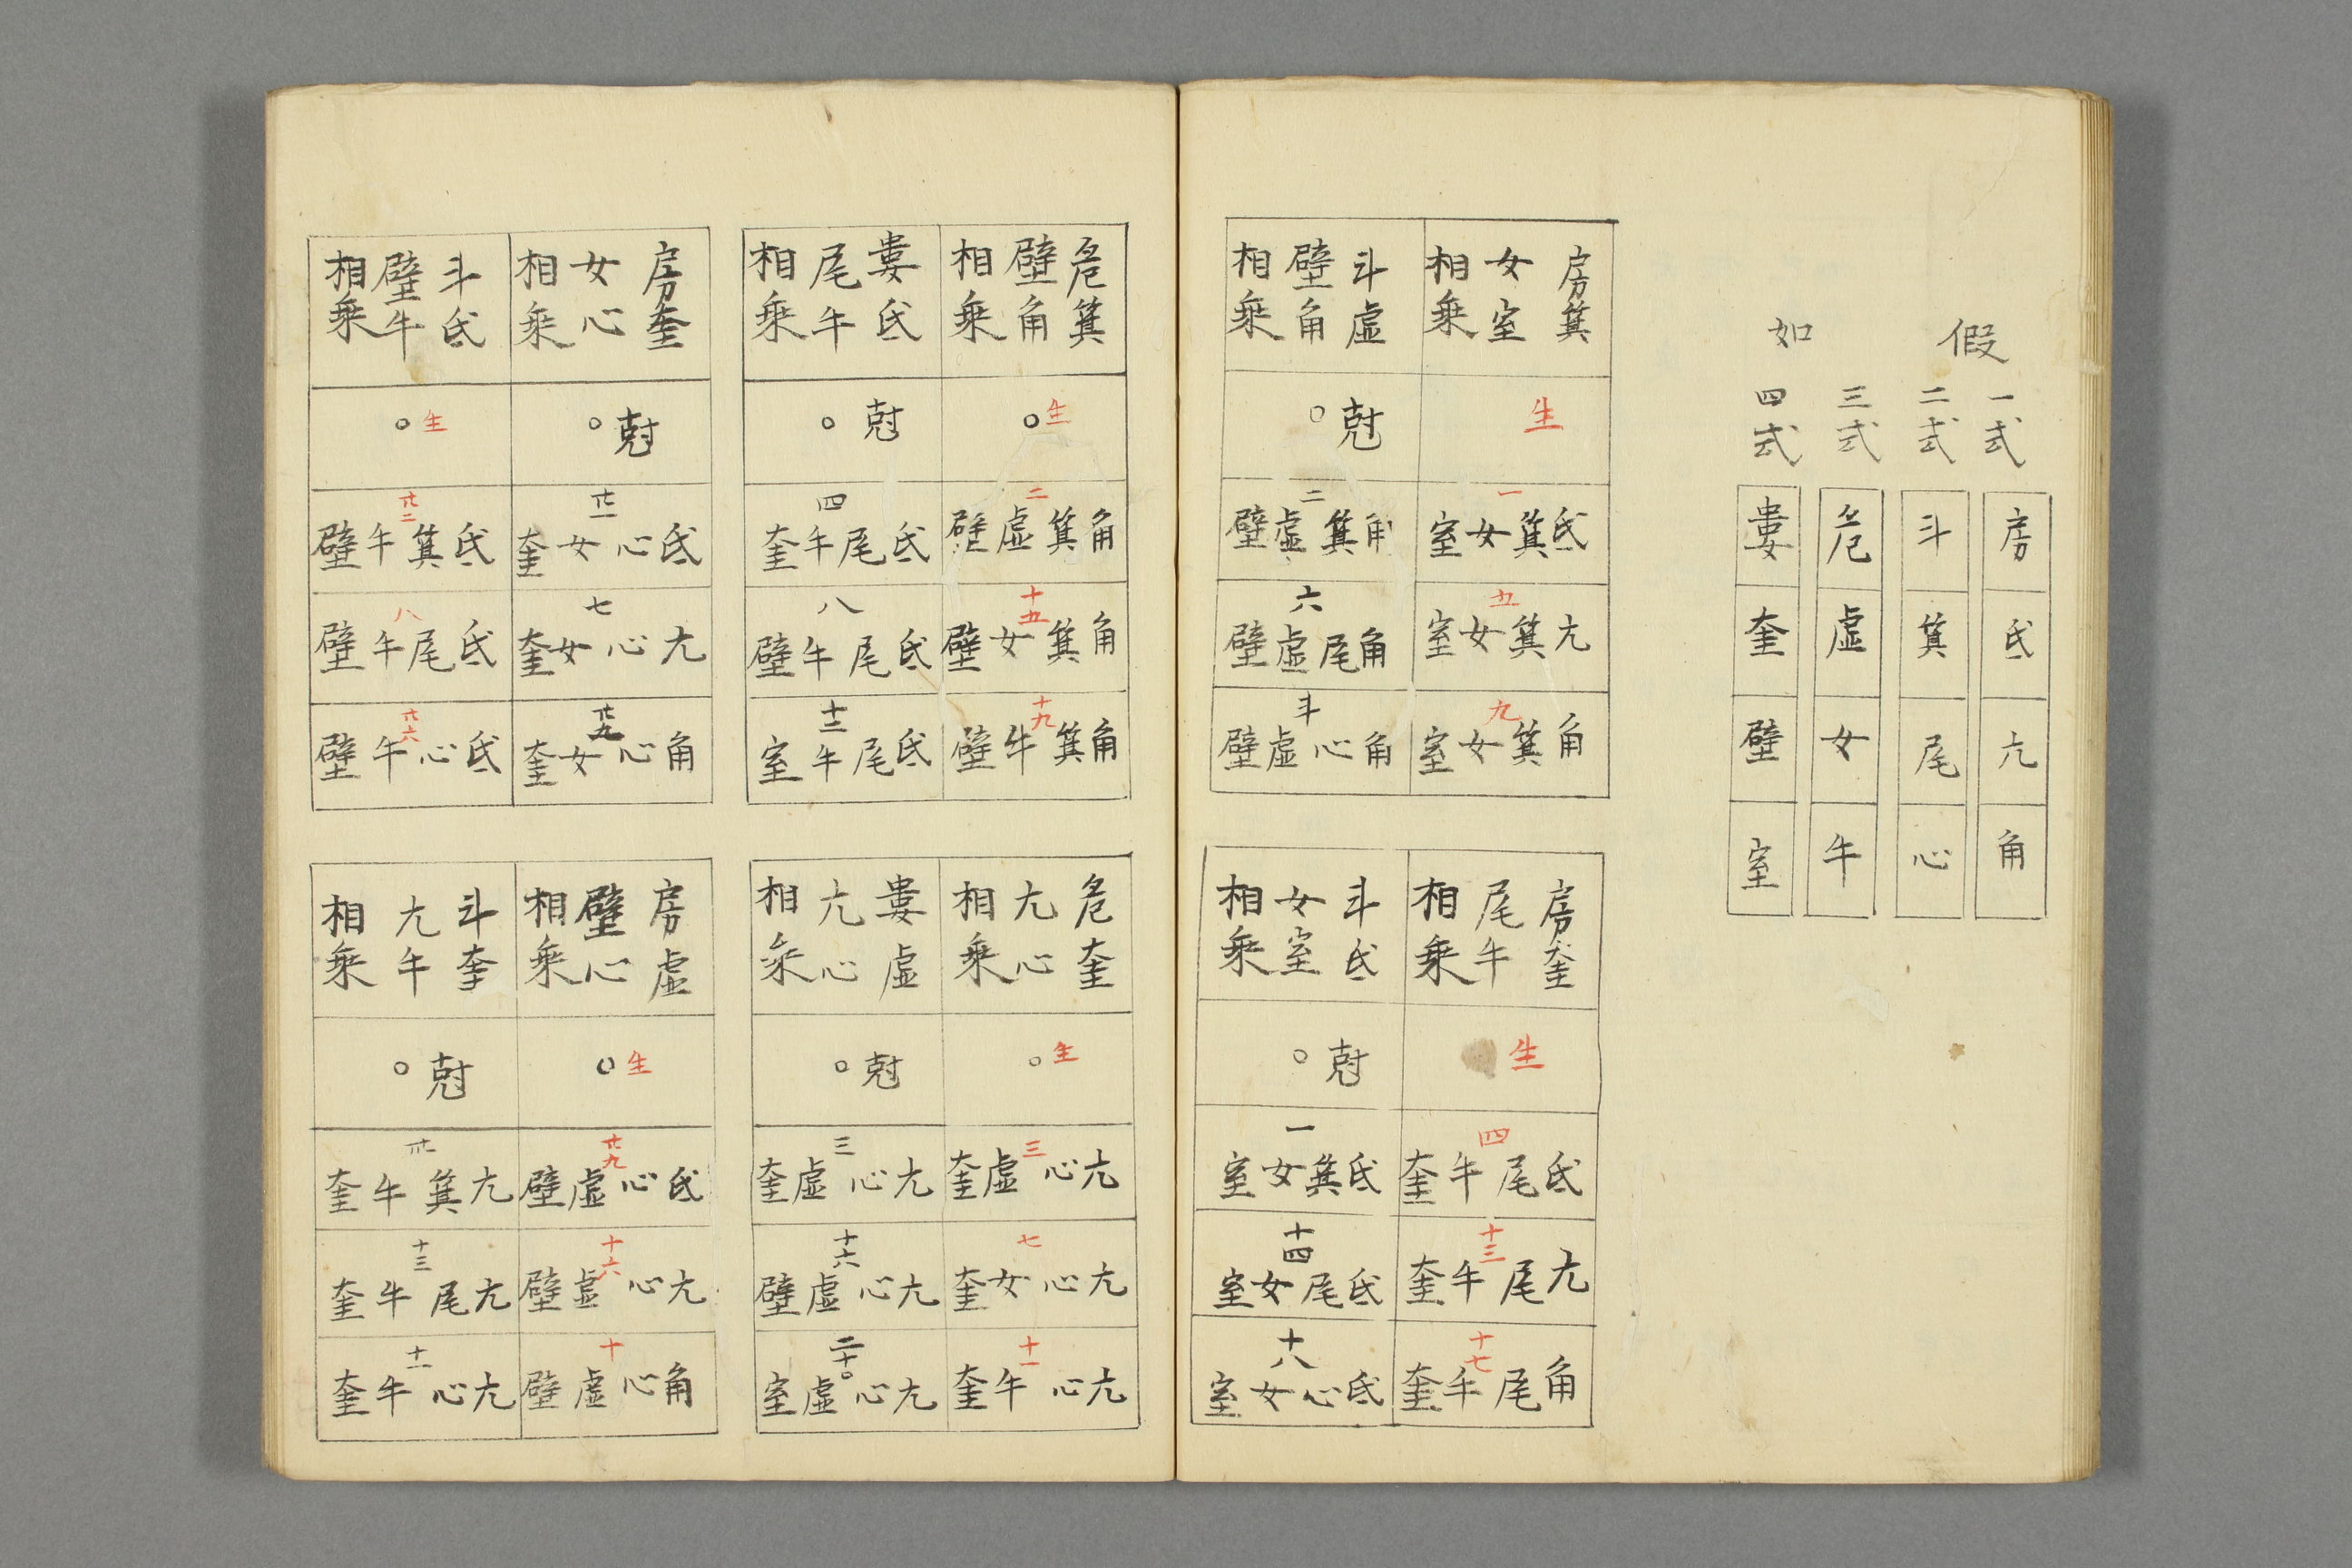 假如
一式 房氐亢角
二式 斗箕尾心
三式 危虛女牛
四式 婁奎壁室
房箕
女室
相乘
生
一
氐箕女室
五
亢箕女室
九
角箕女室
斗虛
壁角
相乘
尅○
二
角箕虛壁
六
角尾虛壁
角心虛壁
房奎
尾牛
相乘
生
四
氐尾牛奎
十三
亢尾牛奎
十七
角尾牛奎
斗氐
女室
相乘
尅○
一
氐箕女室
十四
氐尾女室
十八
氐心女室
危箕
壁角
相乘
生○
二
角箕虛壁
十五
角箕女壁
十九
角箕牛壁
婁氐
尾牛
相乘
尅○
四
氐尾牛奎
八
氐尾牛壁
十二
氐尾牛室
危奎
亢心
相乘
生○
三
亢心虛奎
七
亢心女奎
十一
亢心牛奎
婁虛
亢心
相乘
尅○
三
亢心虛奎
十六
亢心虛壁
二十○
亢心虛室
房奎
女心
相乘
尅○
氐心女奎
七
亢心女奎
角心女奎
斗氐
壁牛
相乘
生○
氐箕牛壁
八
氐尾牛壁
氐心牛壁
房虛
壁心
相乘
生○
氐心虛壁
十六
亢心虛壁
十
角心虛壁
斗奎
亢牛
相乘
尅○
亢箕牛奎
十三
亢尾牛奎
十一
亢心牛奎